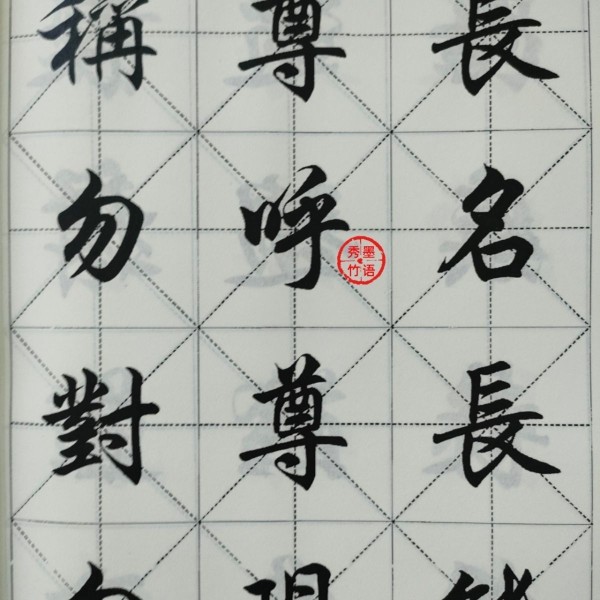 稱尊長
勿呼名
對尊長
秀墨
竹语